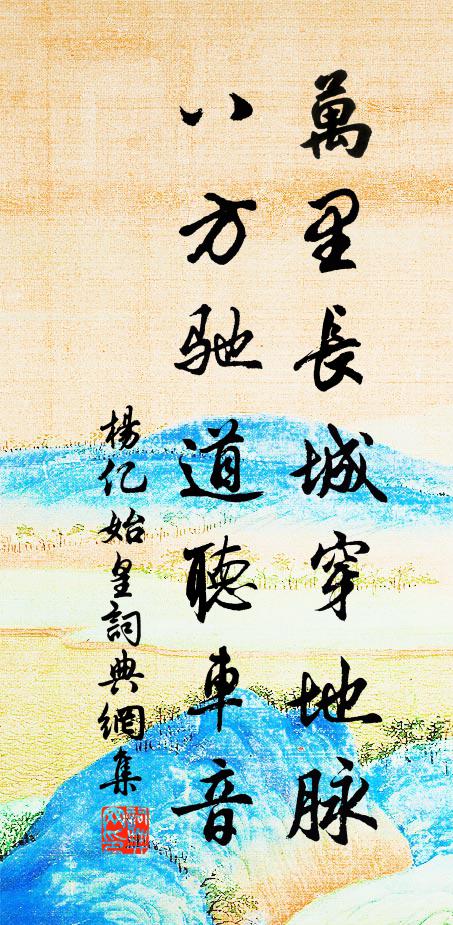 萬里長城穿地脉
八方馳道聽車音
楊亿始皇詞典網集